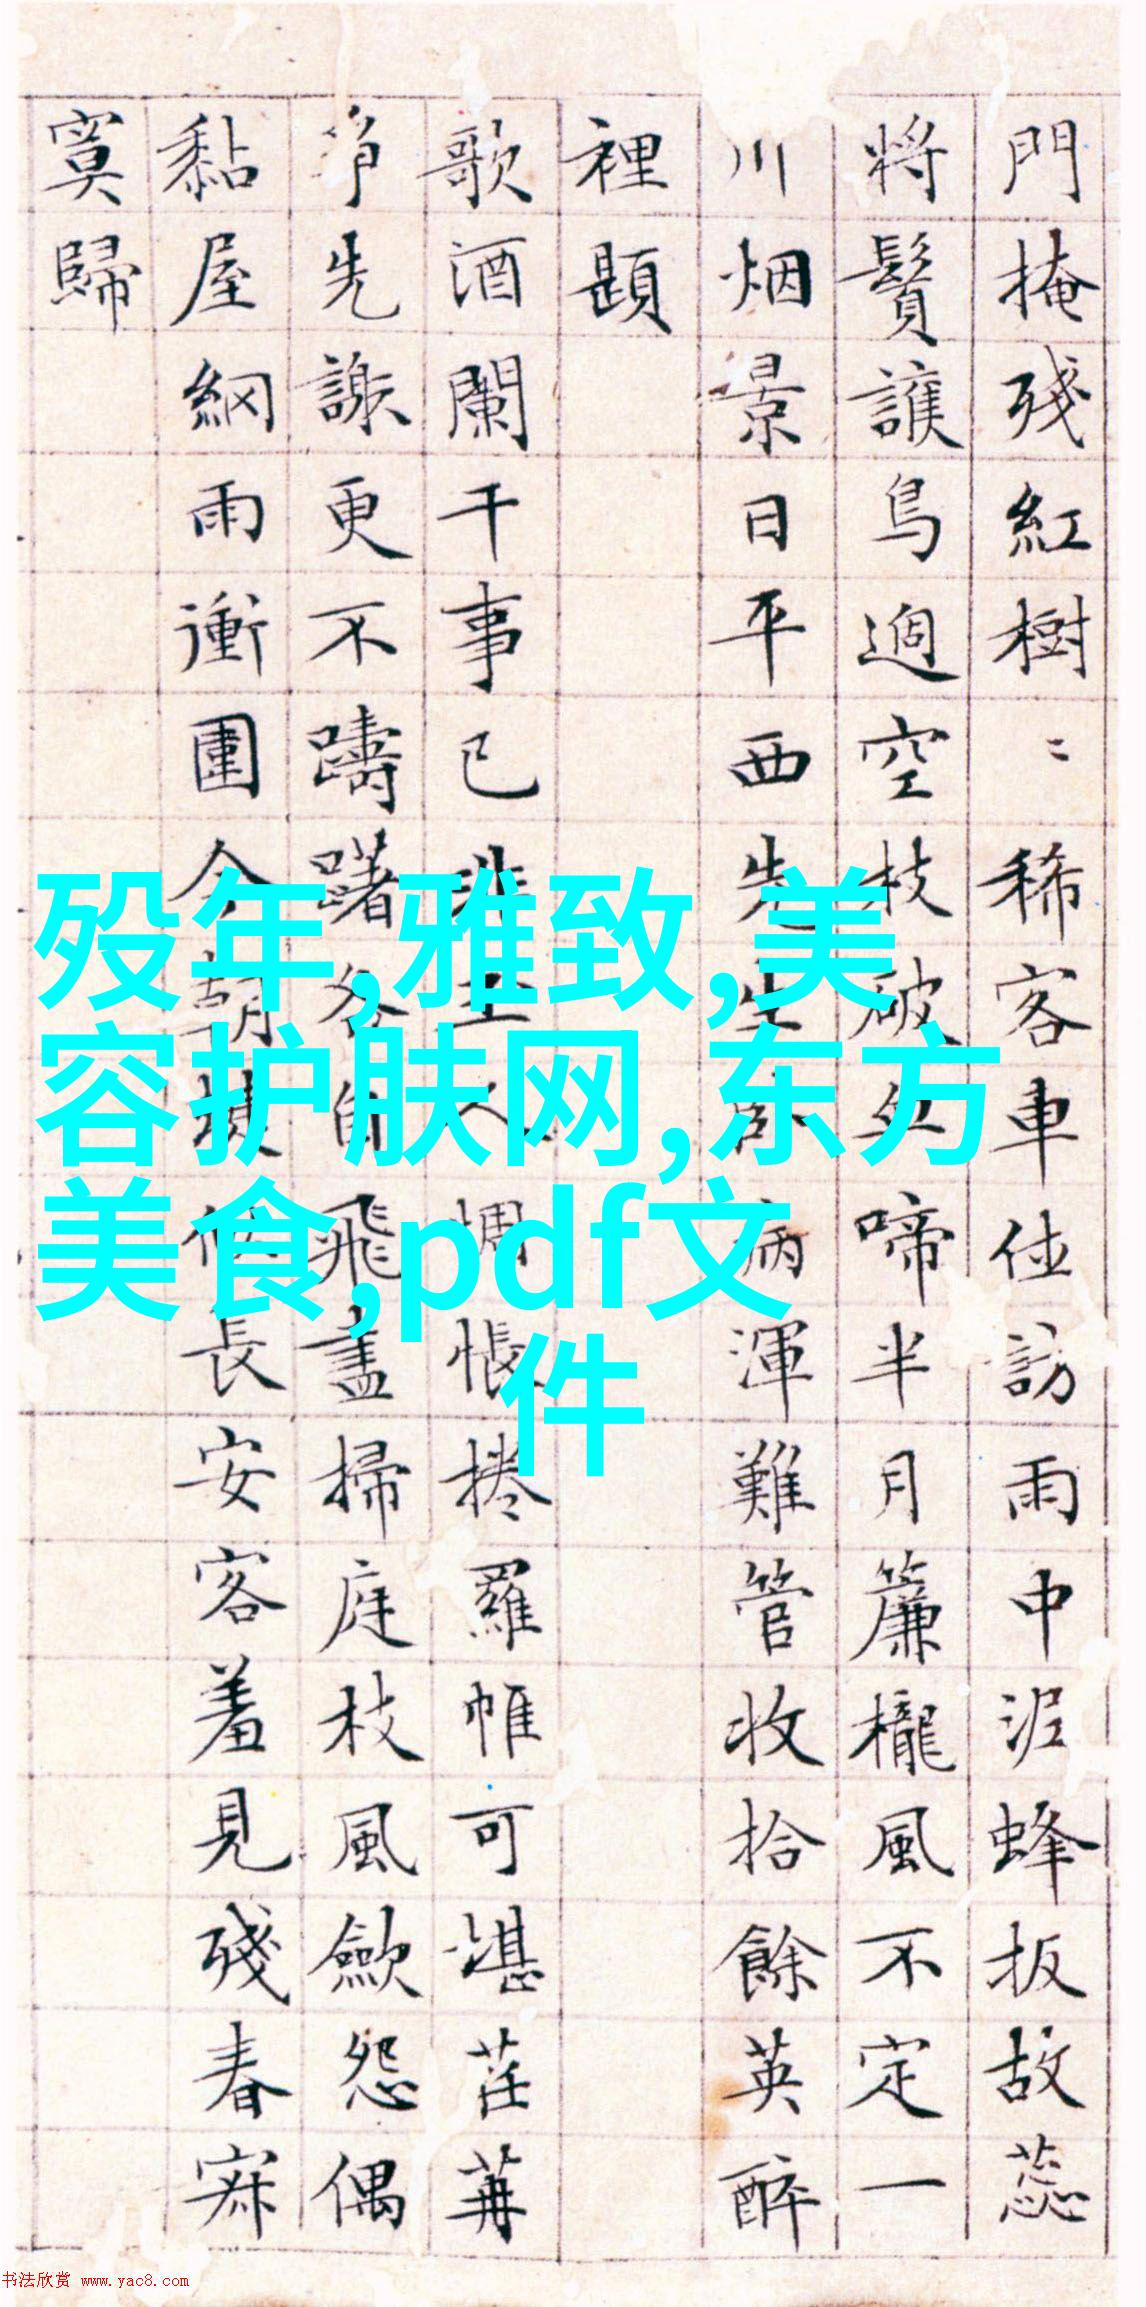 門掩殘紅樹〻稀客車訪雨中泥蜂扳故蕊
將鬢護鳥過空枝破啼半月簾櫳風不定一
川烟景日平西先生臥病渾難管收拾餘英醉
裡題
歌酒闌干事已非主人惆悵捲羅帷可堪茌苒
爭先謝更不躊躇各自飛盡掃庭枝風歛怨偶
黏屋網雨衝圍今朝長安客羞見殘春寂
寞歸
殁年,雅致,美
容护肤网,东方
美食,pdf文
件
书法欣赏 www.yac8.com